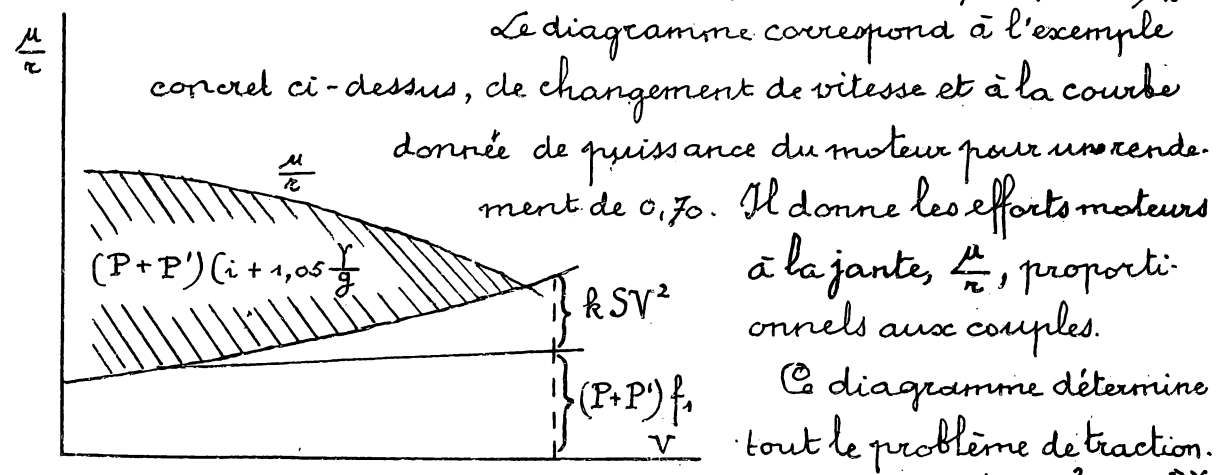 μ/r
Le diagramme correspond à l'exemple
concret ci-dessus, de changement de vitesse et à la courbe
donnée de puissance du moteur pour un rende-
ment de 0,70. Il donne les efforts moteurs
à la jante, μ/r, proporti-
onnels aux couples.
Ce diagramme détermine
tout le problème de traction.
μ/r
(P+P')(i+1,05 γ/g
k SV²
(P+P') f₁
V